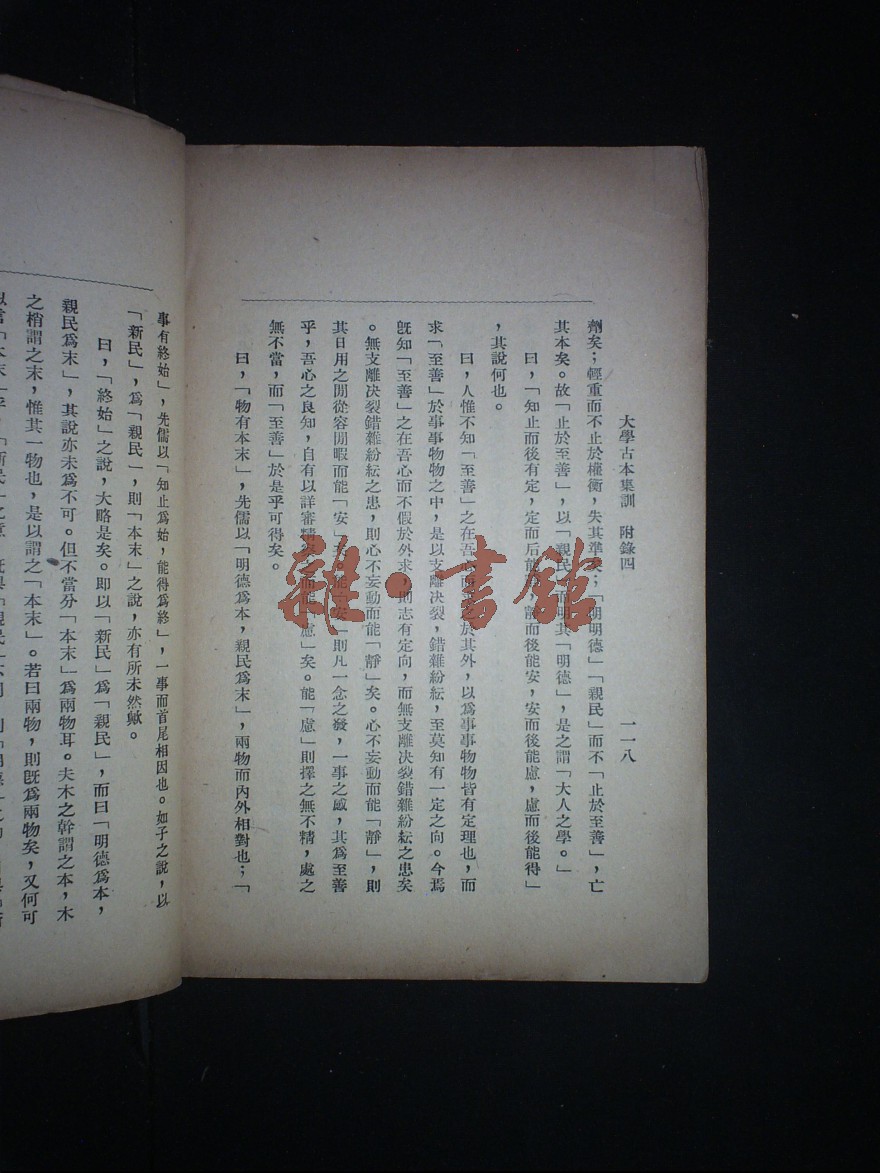 大學古本集訓　附錄四　一一八
劑矣；輕重而不止於權衡，失其準矣；「明明德」「親民」而不「止於至善」，亡
其本矣。故「止於至善」，以「親民」而明其「明德」，是之謂「大人之學。」
曰，「知止而後有定，定而后能靜，靜而後能安，安而後能慮，慮而後能得」
，其說何也。
曰，人惟不知「至善」之在吾心而求之於其外，以爲事事物物皆有定理也，而
求「至善」於事事物物之中，是以支離決裂，錯雜紛紜，至莫知有一定之向。今焉
旣知「至善」之在吾心而不假於外求，則志有定向，而無支離決裂錯雜紛紜之患矣
。無支離決裂錯雜紛紜之患，則心不妄動而能「靜」矣。心不妄動而能「靜」，則
其日用之間從容閒暇而能「安」矣。能「安」則凡一念之發，一事之感，其爲至善
乎，吾心之良知，自有以詳審精察而能「慮」矣。能「慮」則擇之無不精，處之
無不當，而「至善」於是乎可得矣。
曰，「物有本末」，先儒以「明德爲本，親民爲末」，兩物而內外相對也；「
事有終始」，先儒以「知止爲始，能得爲終」，一事而首尾相因也。如子之說，以
「新民」，爲「親民」，則「本末」之說，亦有所未然歟。
曰，「終始」之說，大略是矣。即以「新民」爲「親民」，而曰「明德爲本，
親民爲末」，其說亦未爲不可。但不當分「本末」爲兩物耳。夫木之幹謂之本，木
之梢謂之末，惟其一物也，是以謂之「本末」。若曰兩物，則旣爲兩物矣，又何可
雜·書館